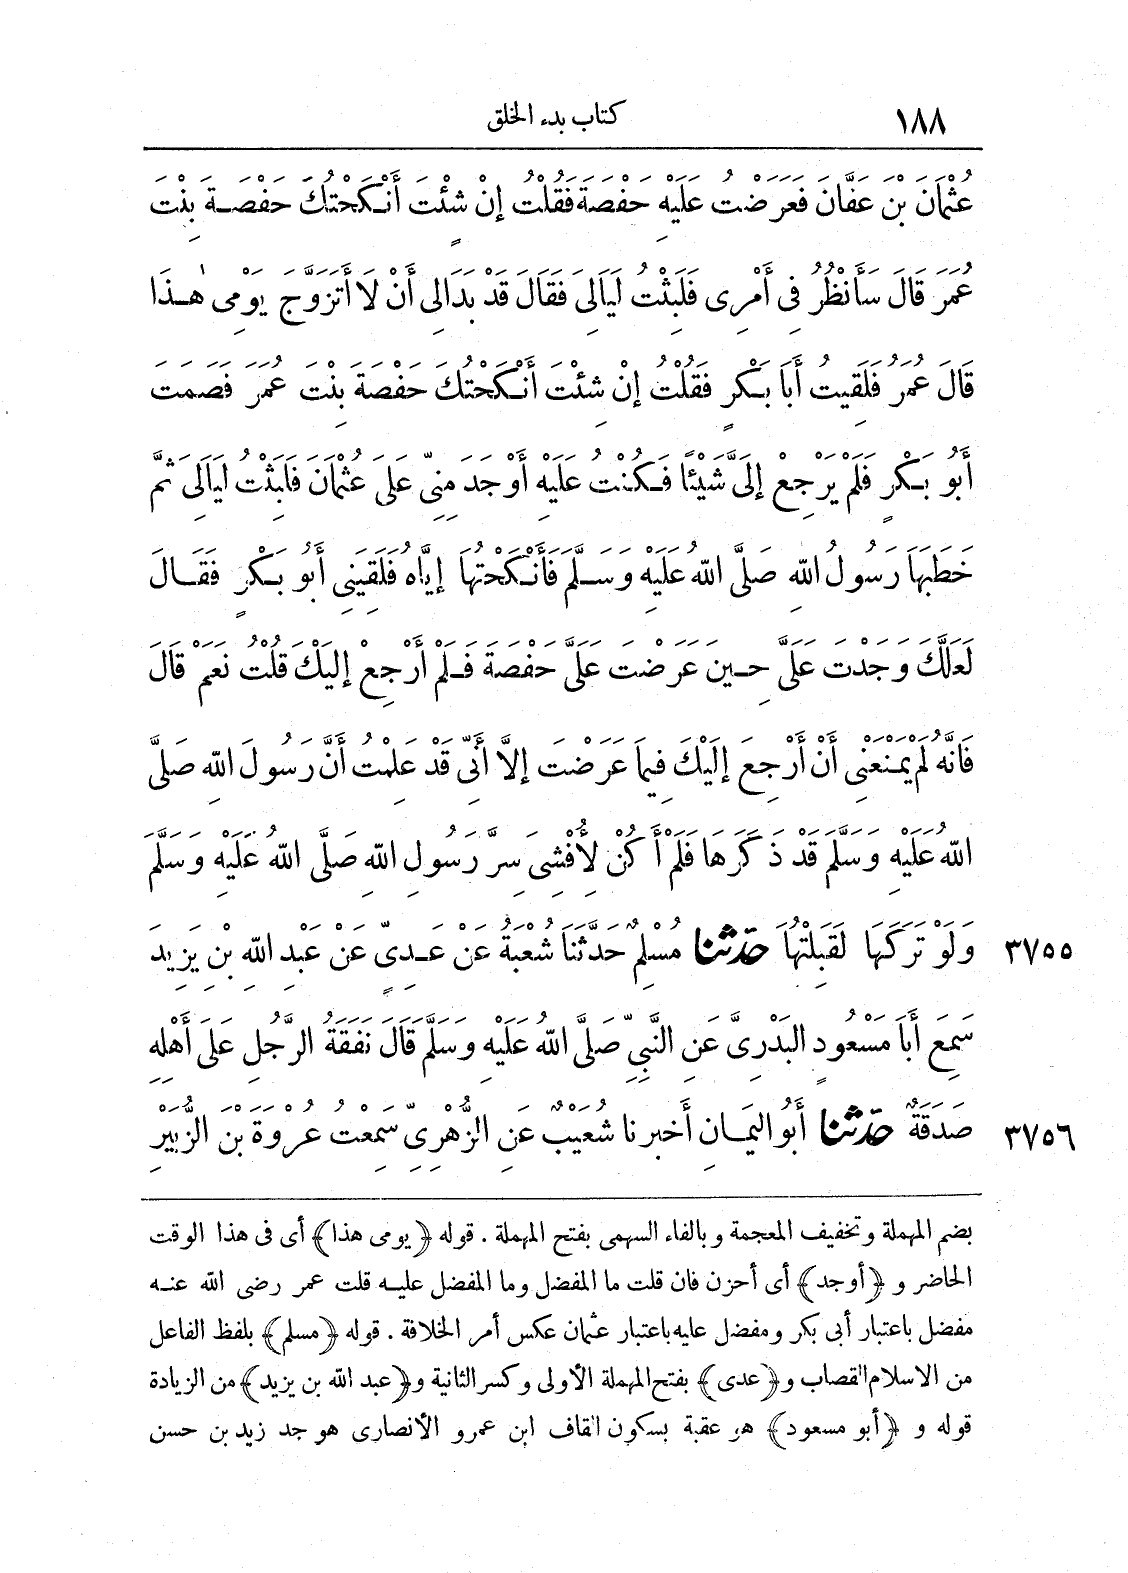 ١٨٨ كتاب بدء الخلق
عُثْمَانَ بْنَ عَفَّانَ فَعَرَضْتُ عَلَيْهِ حَفْصَةَ فَقُلْتُ إِنْ شِئْتَ أَنْكَحْتُكَ حَفْصَةَ بِنْتَ
عُمَرَ قَالَ سَأَنْظُرُ فِى أَمْرِى فَلَبِثْتُ لَيَالِىَ فَقَالَ قَدْ بَدَالِى أَنْ لَا أَتَزَوَّجَ يَوْمِى هٰذَا
قَالَ عُمَرُ فَلَقِيتُ أَبَا بَكْرٍ فَقُلْتُ إِنْ شِئْتَ أَنْكَحْتُكَ حَفْصَةَ بِنْتَ عُمَرَ فَصَمَتَ
أَبُو بَكْرٍ فَلَمْ يَرْجِعْ إِلَىَّ شَيْئًا فَكُنْتُ عَلَيْهِ أَوْجَدَ مِنِّى عَلَى عُثْمَانَ فَلَبِثْتُ لَيَالِىَ ثُمَّ
خَطَبَهَا رَسُولُ اللهِ صَلَّى اللهُ عَلَيْهِ وَسَلَّمَ فَأَنْكَحْتُهَا إِيَّاهُ فَلَقِيَنِى أَبُو بَكْرٍ فَقَالَ
لَعَلَّكَ وَجَدْتَ عَلَىَّ حِينَ عَرَضْتَ عَلَىَّ حَفْصَةَ فَلَمْ أَرْجِعْ إِلَيْكَ قُلْتُ نَعَمْ قَالَ
فَانَّهُ لَمْ يَمْنَعْنِى أَنْ أَرْجِعَ إِلَيْكَ فِيمَا عَرَضْتَ إِلَّا أَنِّى قَدْ عَلِمْتُ أَنَّ رَسُولَ اللهِ صَلَّى
اللهُ عَلَيْهِ وَسَلَّمَ قَدْ ذَكَرَهَا فَلَمْ أَكُنْ لِأُفْشِىَ سِرَّ رَسُولِ اللهِ صَلَّى اللهُ عَلَيْهِ وَسَلَّمَ
٣٧٥٥ وَلَوْ تَرَكَهَا لَقَبِلْتُهَا حَدَّثَنَا مُسْلِمٌ حَدَّثَنَا شُعْبَةُ عَنْ عَدِىٍّ عَنْ عَبْدِ اللهِ بْنِ يَزِيدَ
سَمِعَ أَبَا مَسْعُودٍ الْبَدْرِىَّ عَنِ النَّبِىِّ صَلَّى اللهُ عَلَيْهِ وَسَلَّمَ قَالَ نَفَقَةُ الرَّجُلِ عَلَى أَهْلِهِ
٣٧٥٦ صَدَقَةٌ حَدَّثَنَا أَبُو الْيَمَانِ أَخْبَرَنَا شُعَيْبٌ عَنِ الزُّهْرِىِّ سَمِعْتُ عُرْوَةَ بْنَ الزُّبَيْرِ
بضم المهملة وتخفيف المعجمة وبالفاء السهمى بفتح المهملة . قوله ﴿يومى هذا﴾ أى فى هذا الوقت
الحاضر و ﴿أوجد﴾ أى أحزن فان قلت ما المفضل وما المفضل عليه قلت عمر رضى الله عنه
مفضل باعتبار أبى بكر ومفضل عليه باعتبار عثمان عكس أمر الخلافة . قوله ﴿مسلم﴾ بلفظ الفاعل
من الاسلام القصاب و﴿عدى﴾ بفتح المهملة الأولى وكسر الثانية و﴿عبد الله بن يزيد﴾ من الزيادة
قوله و ﴿أبو مسعود﴾ هو عقبة بسكون القاف ابن عمرو الأنصارى هو جد زيد بن حسن